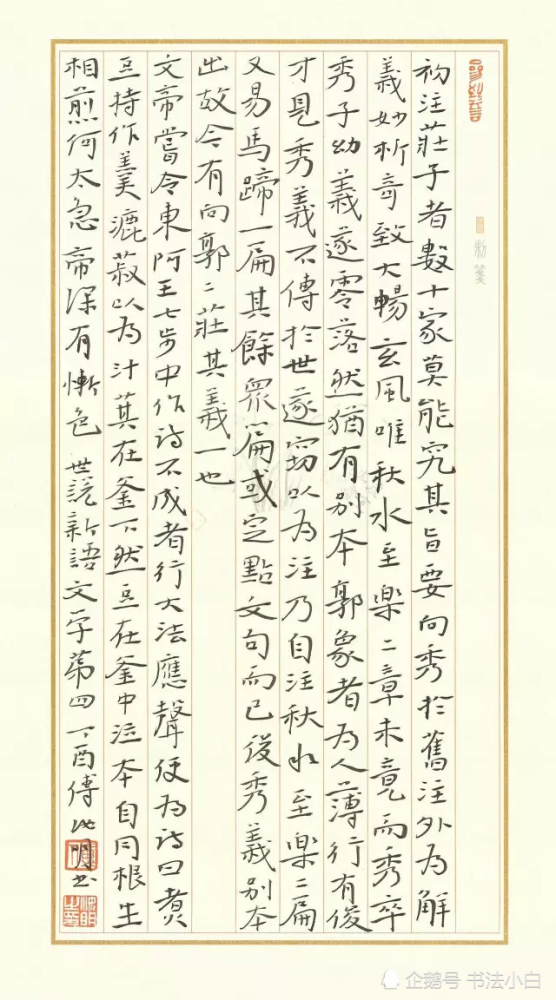 初注莊子者數十家莫能究其旨要向秀於舊注外為解
義妙析奇致大暢玄風唯秋水至樂二章未竟而秀卒
秀子幼義遂零落然猶有別本郭象者為人薄行有俊
才見秀義不傳於世遂竊以為注乃自注秋水至樂二扁
又易馬蹄一扁其餘眾扁或定點文句而已後秀義別本
出故今有向郭二莊其義一也
文帝嘗令東阿王七步中作詩不成者行大法應聲便為詩曰煮
豆持作羹漉菽以為汁萁在釜下然豆在釜中泣本自同根生
相煎何太急帝深有慚色 世說新語文學第四 丁酉傅 明书
企鹅号 书法小白